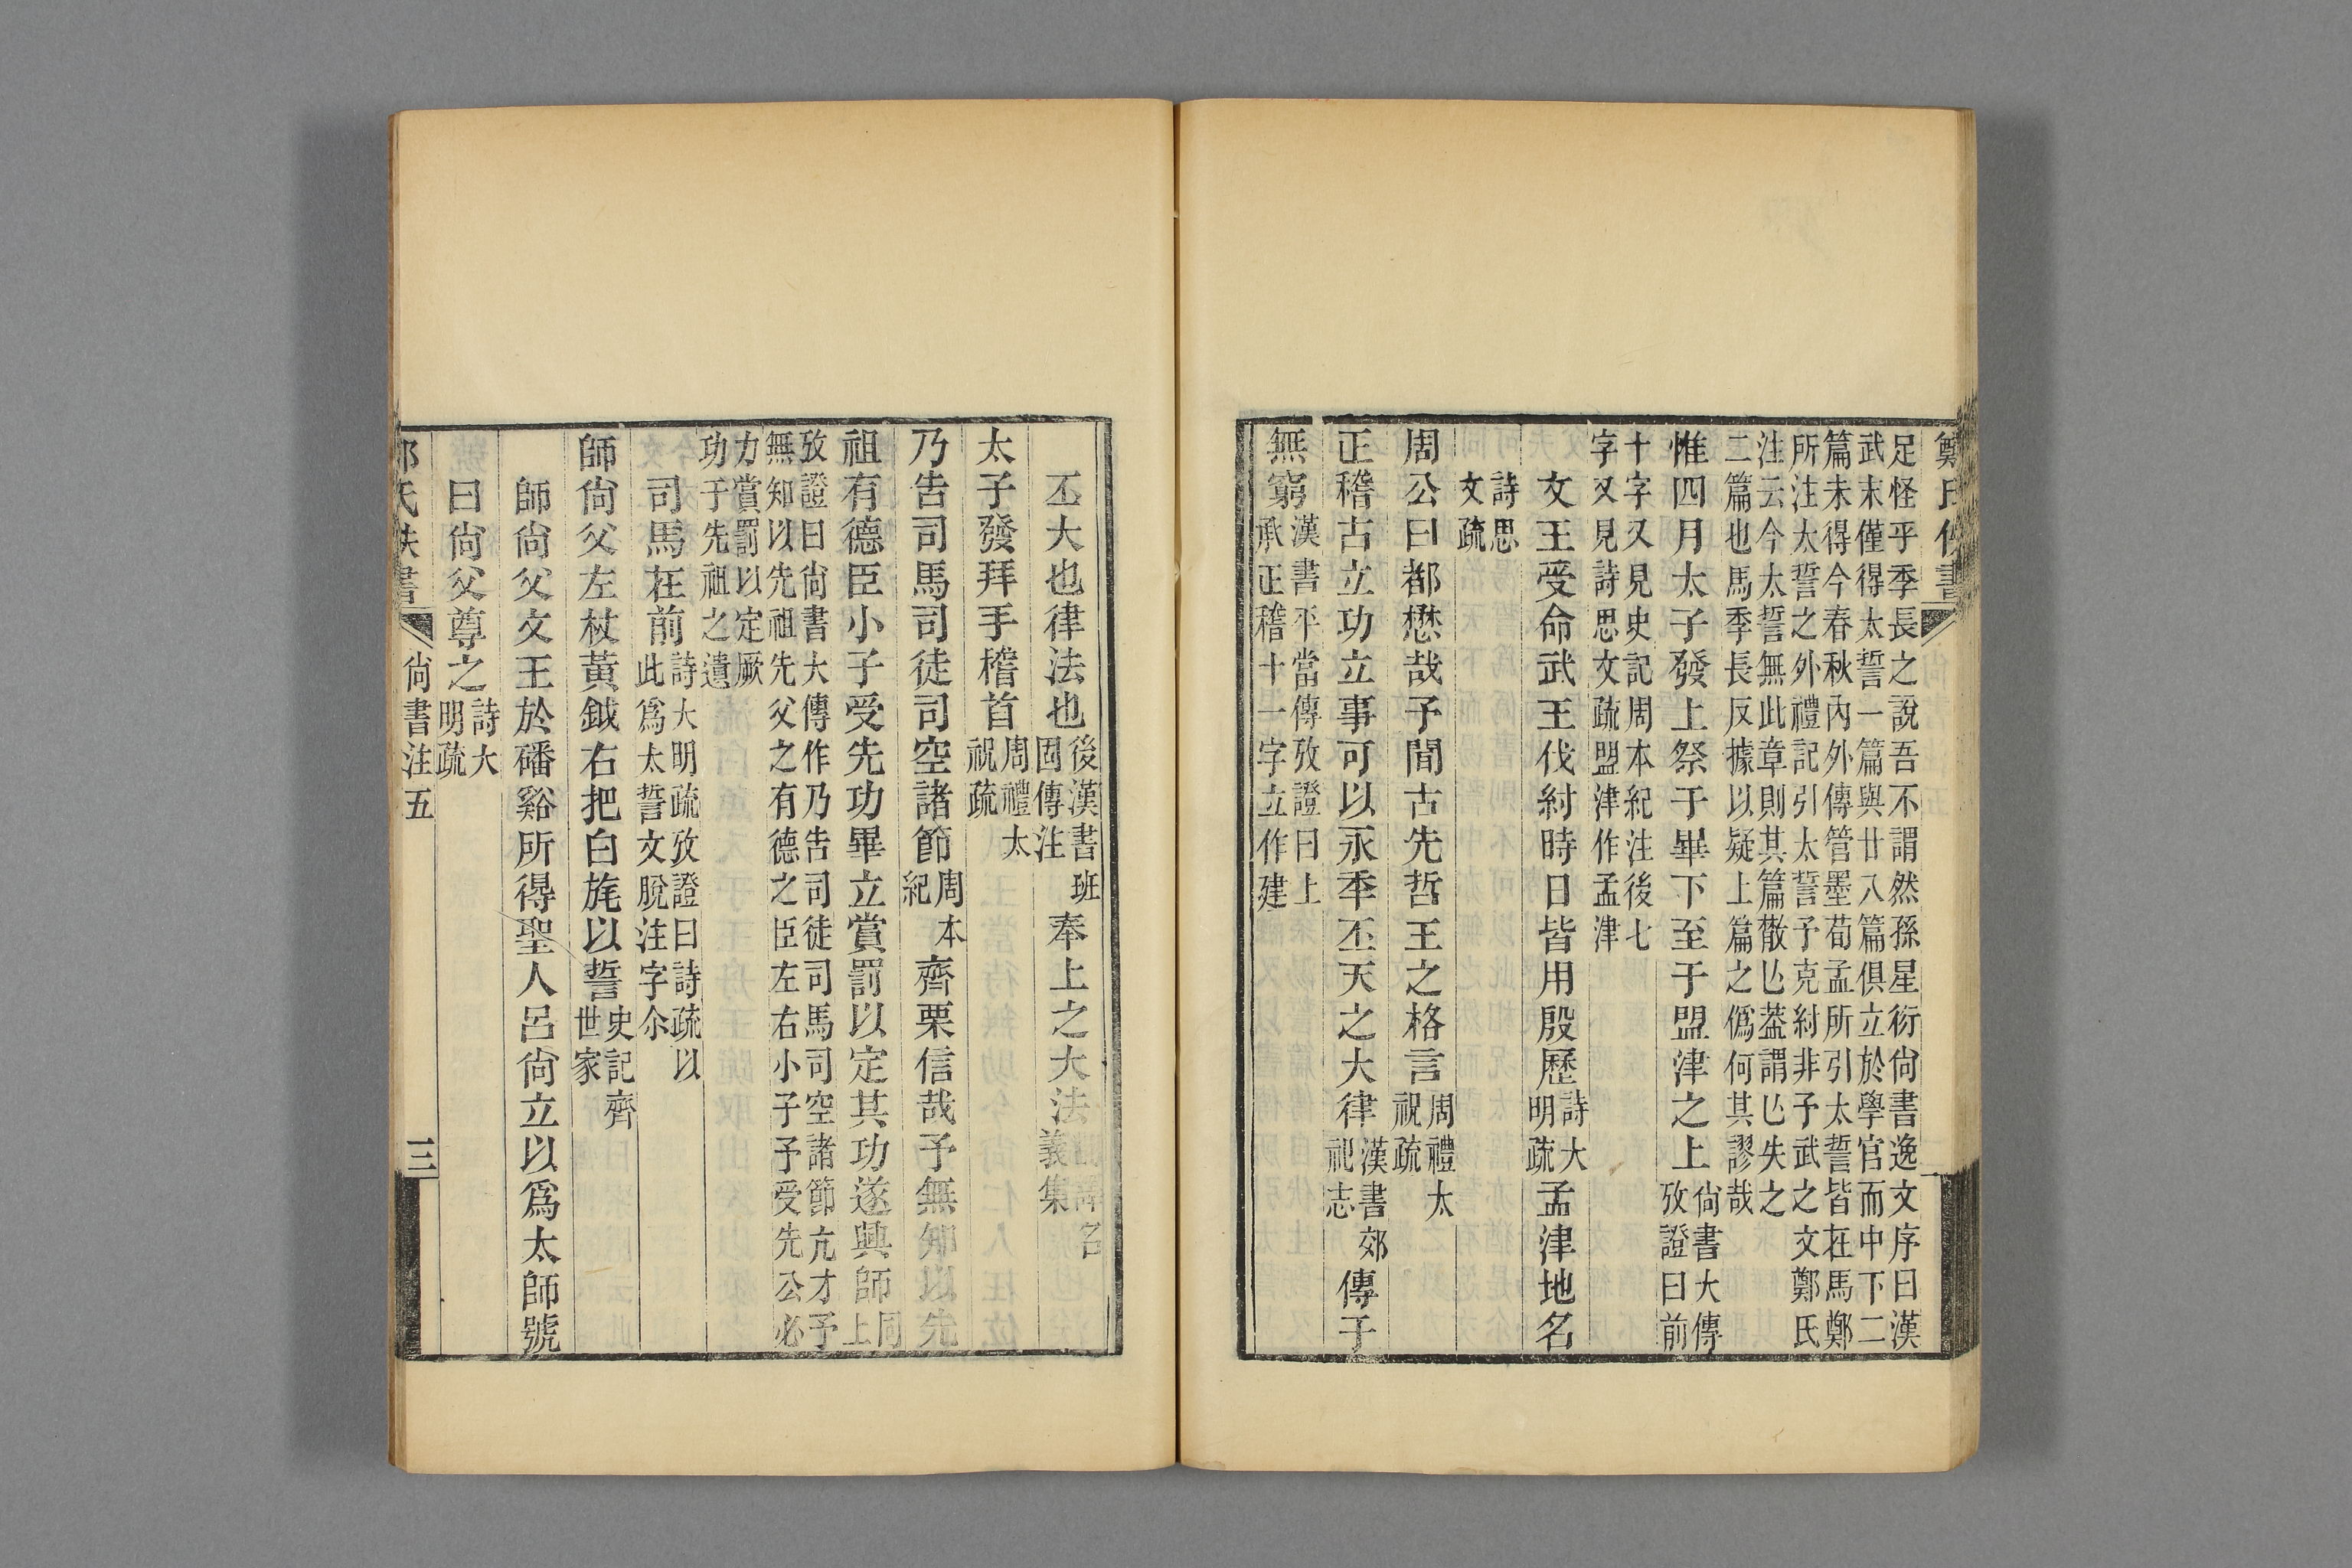 鄭氏佚書
足怪乎季長之說吾不謂然孫星衍尙書逸文序曰漢
武末僅得太誓一篇與廿八篇俱立於學官而中下二
篇未得今春秋內外傳管墨荀孟所引太誓皆在馬鄭
所注太誓之外禮記引太誓予克紂非予武之文鄭氏
注云今太誓無此章則其篇散亾葢謂亾失之
二篇也馬季長反據以疑上篇之僞何其謬哉
惟四月太子發上祭于畢下至于盟津之上尙書大傳
攷證曰前
十字又見史記周本紀注後七
字又見詩思文疏盟津作孟津
文王受命武王伐紂時日皆用殷歷詩大
明疏孟津地名
詩思
文疏
周公曰都懋哉予聞古先哲王之格言周禮太
祝疏
正稽古立功立事可以永年丕天之大律漢書郊
祀志傳于
無窮漢書平當傳攷證曰上
承正稽十一字立作建
丕大也律法也後漢書班
固傳注奉上之大法
義集
太子發拜手稽首周禮太
祝疏
乃告司馬司徒司空諸節周本
紀齊栗信哉予無知以先
祖有德臣小子受先功畢立賞罰以定其功遂興師同
上
攷證曰尙書大傳作乃告司徒司馬司空諸節亢才予
無知以先祖先父之有德之臣左右小子予受先公必
力賞罰以定厥
功于先祖之遺
司馬在前詩大明疏攷證曰詩疏以
此爲太誓文脫注字尒
師尙父左杖黃鉞右把白旄以誓史記齊
世家
師尙父文王於磻谿所得聖人呂尙立以爲太師號
曰尙父尊之詩大
明疏
尙書注五
三